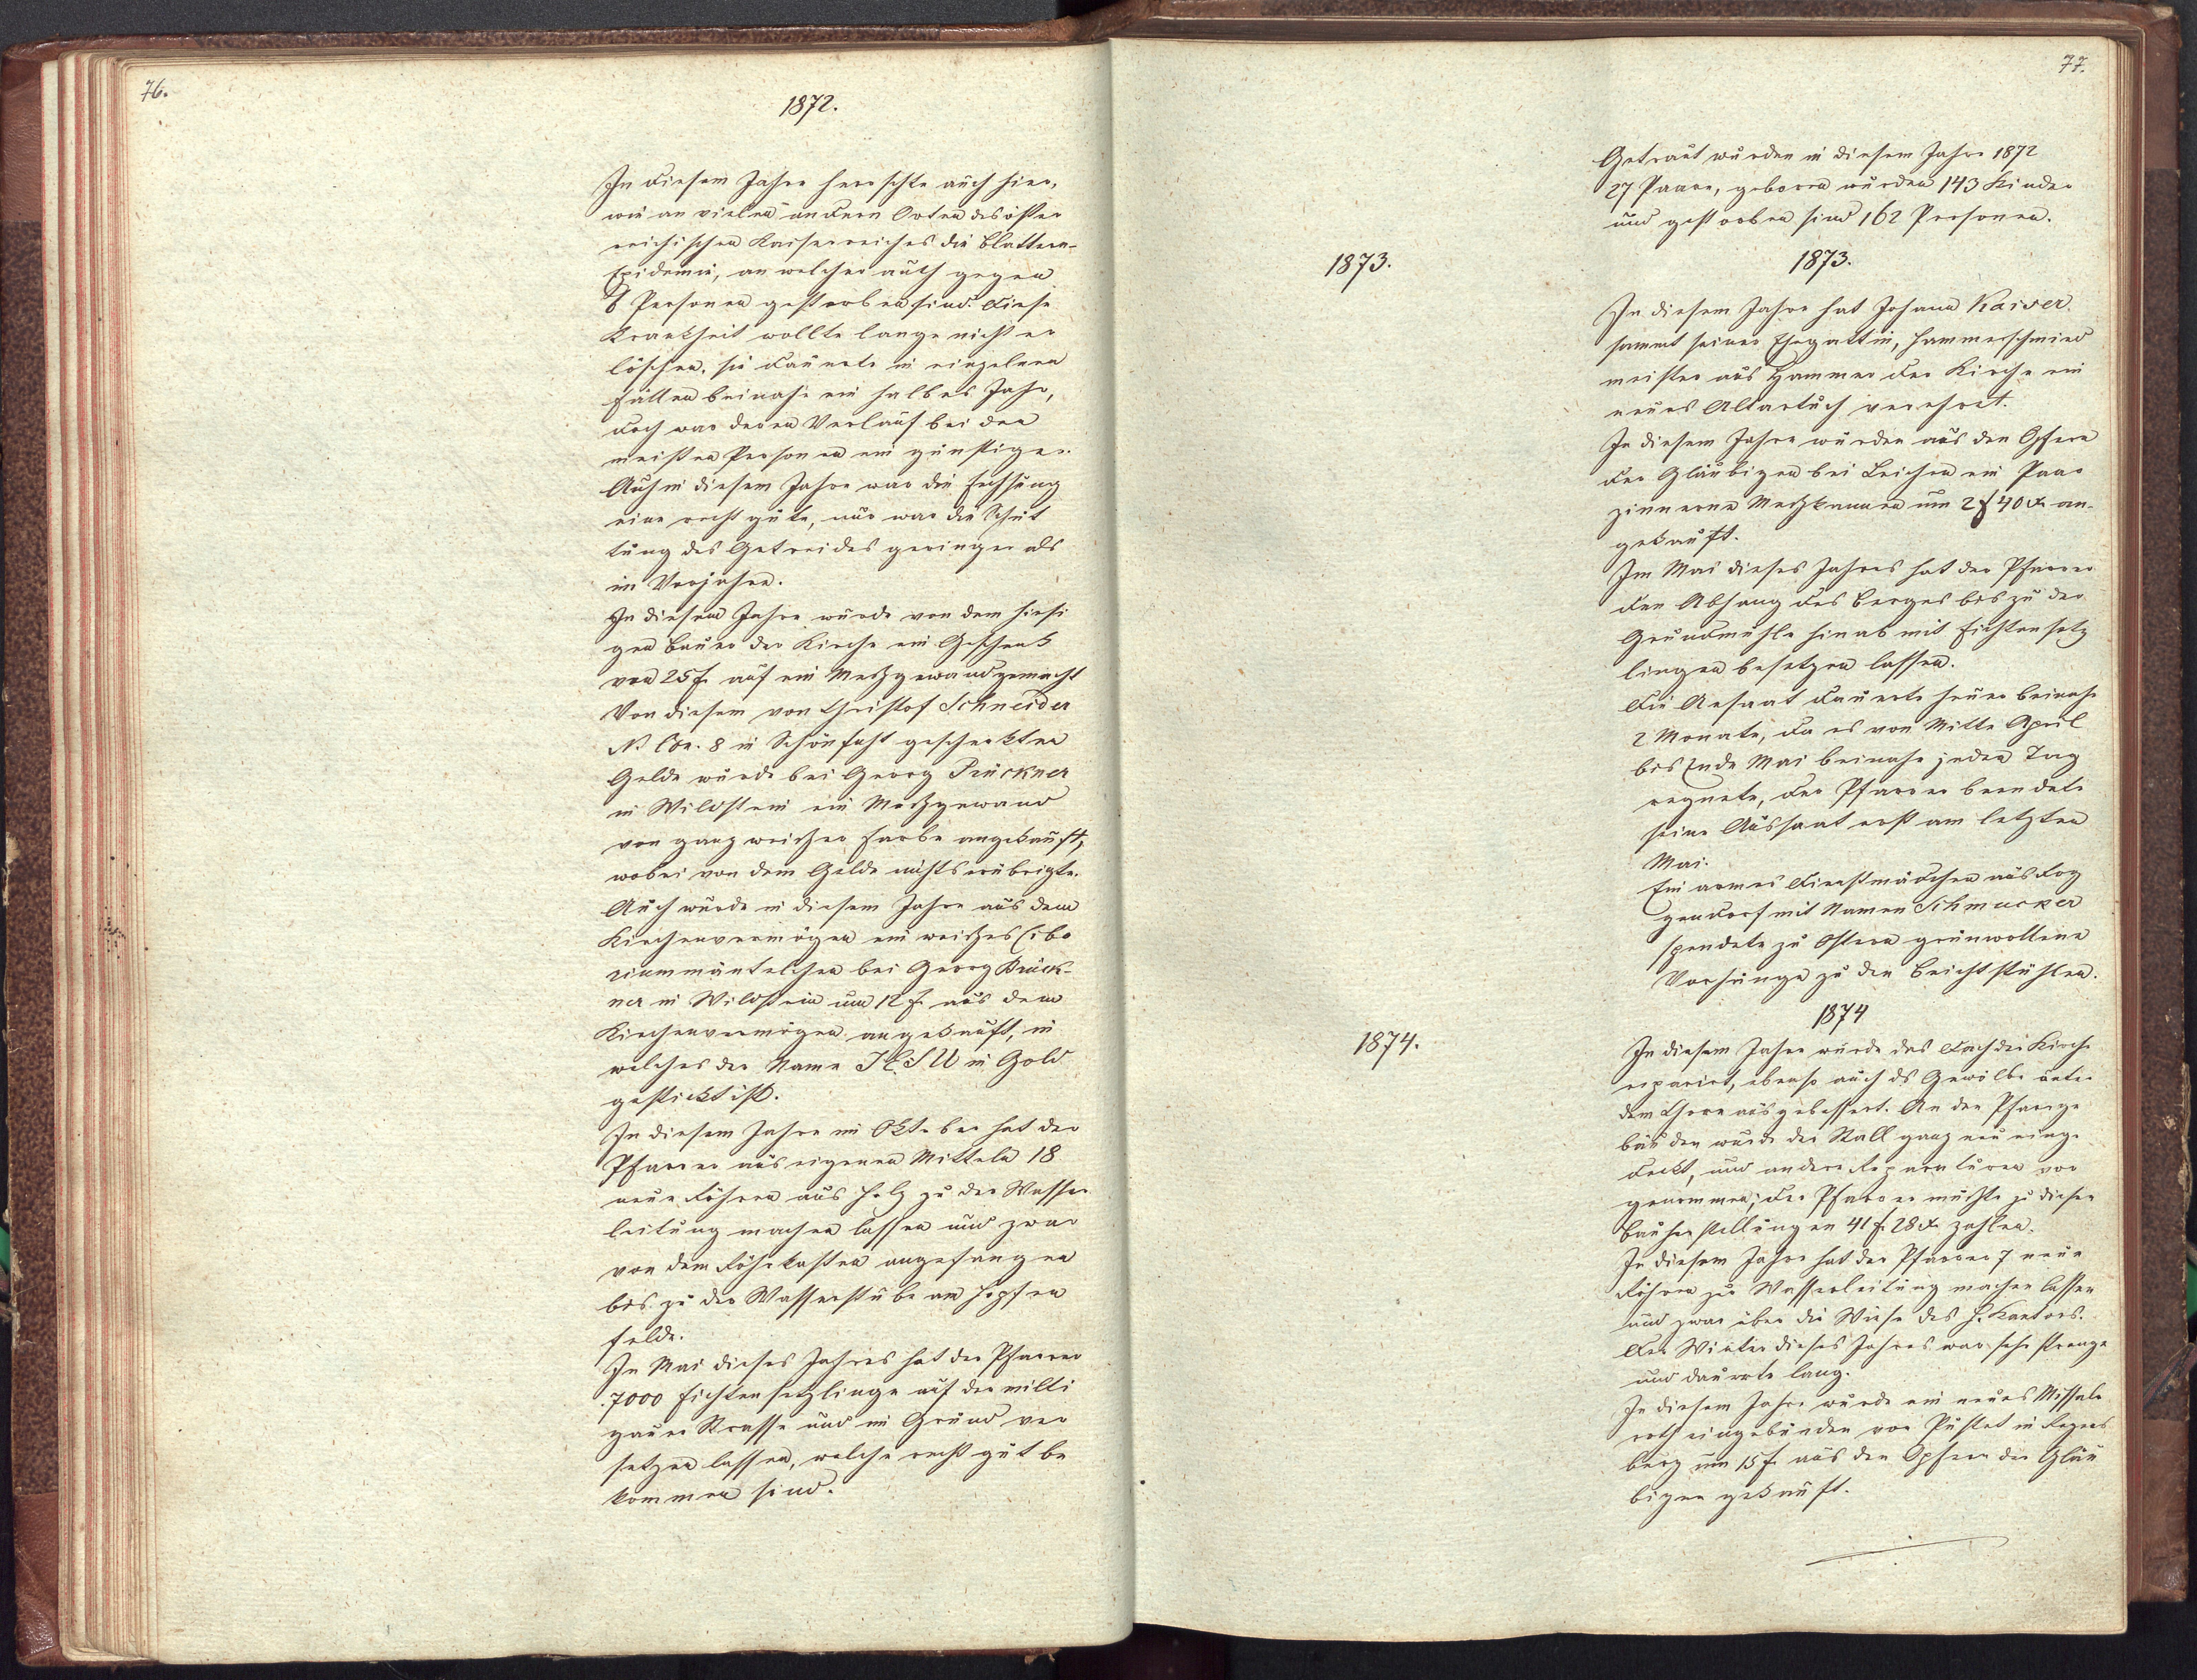 76.
1872.
In diesem Jahre herrschte auch hier,
wie an vielen andern Orten des öster
reichischen Kaiserreiches die Blattern-
Epidemie, an welcher auch gegen
6 Personen gestorben sind. Diese
Krankheit wollte lange nicht er
löschen, sie dauerte in einzelnen
Fällen beinahe ein halbes Jahr,
doch war deren Verlauf bei den
meisten Personen ein günstiger.
Auch in diesem Jahre war die Fechsung
eine recht gute, nur war die Schüt
tung des Getreides geringer als
im Vorjahre.
In diesem Jahre wurde von dem hiesi
gen Bauer der Kirche ein Geschenk
von 25 f. auf ein Meßgewand gemacht
Von diesem von Christof Schneider
N. C. 8 in Schönficht geschenkten
Gelde wurde bei Georg Prückner
in Wildstein ein Meßgewand
von ganz weißer Farbe angekauft,
wobei von dem Gelde nichts erübrigte.
Auch wurde in diesem Jahre aus dem
Kirchenvermögen ein weißes Cibo
riummäntelchen bei Georg Brück-
ner in Wildstein um 12 f. aus dem
Kirchenvermögen angekauft, in
welches der Name JESU in Gold
gestickt ist.
In diesem Jahre im Oktober hat der
Pfarrer aus eigenen Mitteln 18
neue Röhren aus Holz zu der Wasser
leitung machen lassen und zwar
von dem Röhrkasten angefangen
bis zu der Wasserstube am Hopfen
felde.
Im Mai dieses Jahres hat der Pfarrer
7000 Fichtensetzlinge auf der milti
gauer Strasse und im Grund ver
setzen lassen, welche recht gut be
kommen sind.
77.
Getraut wurden in diesem Jahre 1872
27 Paare, geboren wurden 143 Kinder
und gestorben sind 162 Personen.
1873.
1873.
In diesem Jahre hat Johann Kaiser
sammt seiner Ehegattin, Hammerschmied
meister aus Hammer der Kirche ein
neues Altartuch verehret.
In diesem Jahre wurden aus den Opfern
der Gläubigen bei Leichen ein Paar
zinnerne Meßkannen um 2 f 40 x an-
gekauft.
Im Mai dieses Jahres hat der Pfarrer
den Abhang des Berges bis zu der
Grundmühle hinab mit Fichtensetz
lingen besetzen lassen.
Die Ansaat dauerte heuer beinahe
2 Monate, da es von Mitte April
bis Ende Mai beinahe jeden Tag
regnete, der Pfarrer beendete
seine Aussaat erst am letzten
Mai.
Ein armes Dienstmädchen aus Rog
gendorf mit Namen Schmucker
spendete zu Ostern grünwollene
Vorhänge zu den Beichtstühlen.
1874
1874.
In diesem Jahre wurde das Dach der Kirche
reparirt, ebenso auch ds Gewölbe unter
dem Chore ausgebessert. An den Pfarrge
bäuden wurde der Stall ganz neu einge
deckt, und andere Reparaturen vor
genommen; der Pfarrer mußte zu diesen
Bauherstellungen 41 f. 28 x zahlen.
In diesem Jahre hat der Pfarrer 7 neue
Röhren zur Wasserleitung machen lassen
und zwar über die Wiese des H. Kantors.
Der Winter dieses Jahres war sehr strenge
und dauerte lang.
In diesem Jahre wurde ein neues Missale
roth eingebunden von Pustet in Regens
burg um 15 f. aus den Opfern der Gläu
bigen gekauft.